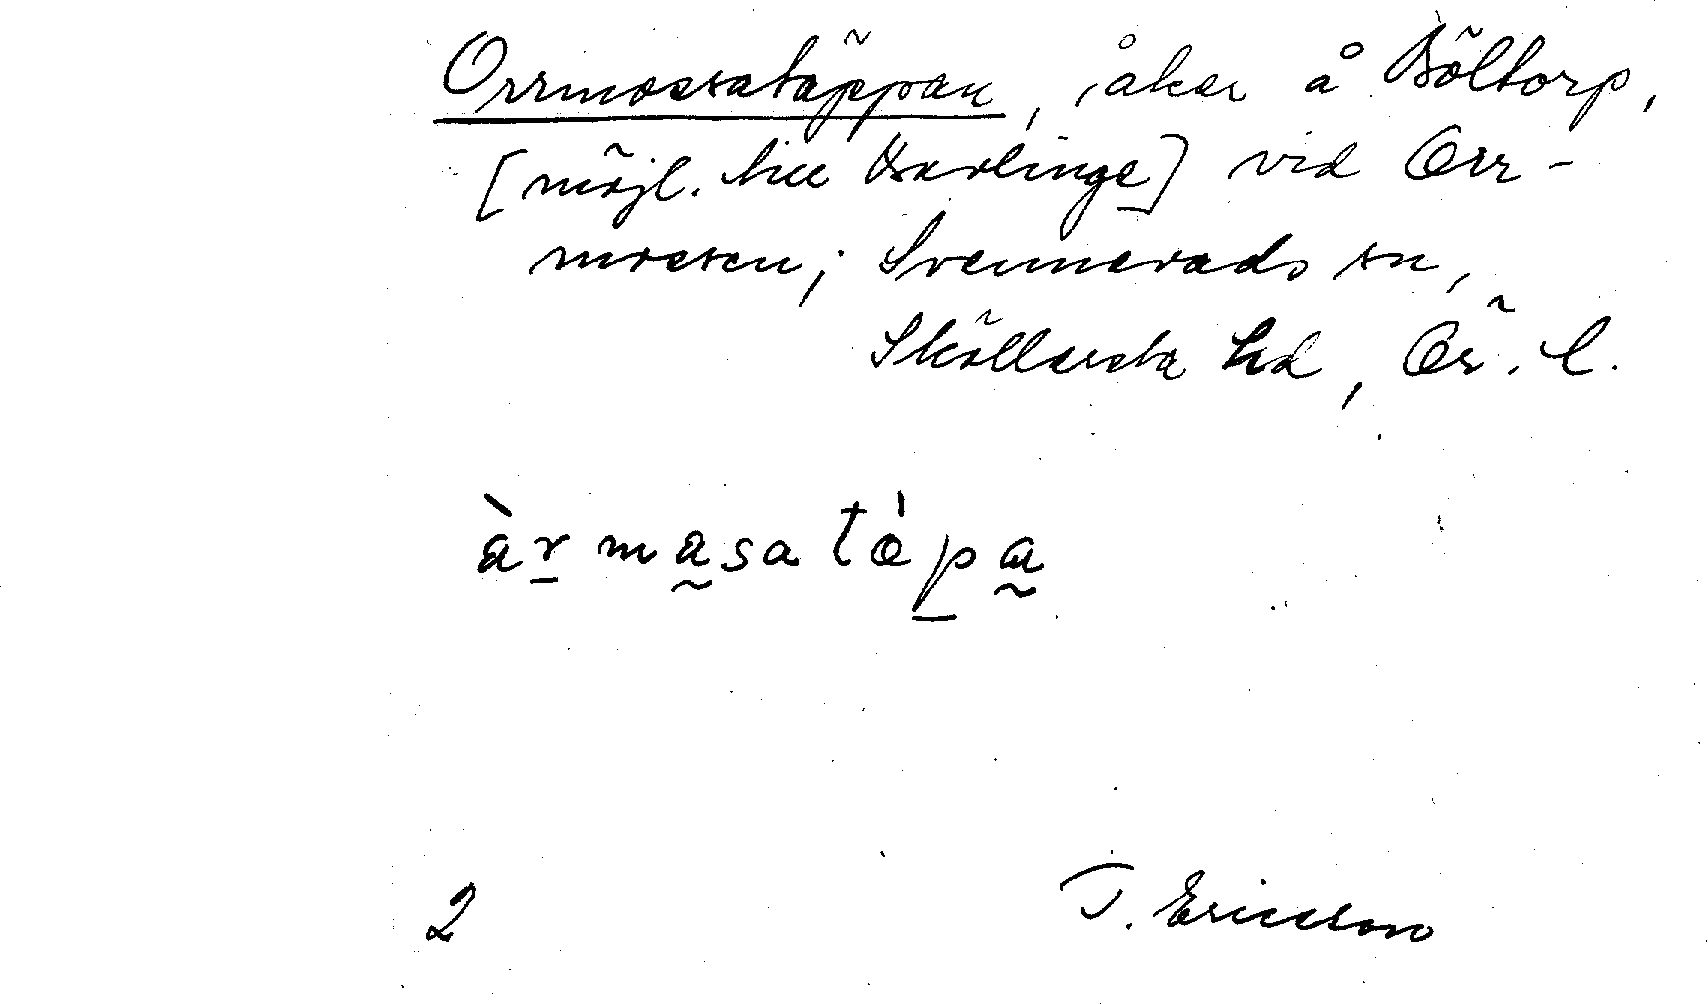 Orrmossatäppan, åker å Böltorp,
[möjl. till Barlinge] vid Orr-
mossen; Svennevads sn,
Sköllersta hd, Ör. l.
àrmasatòpa
2 T. Ericsson